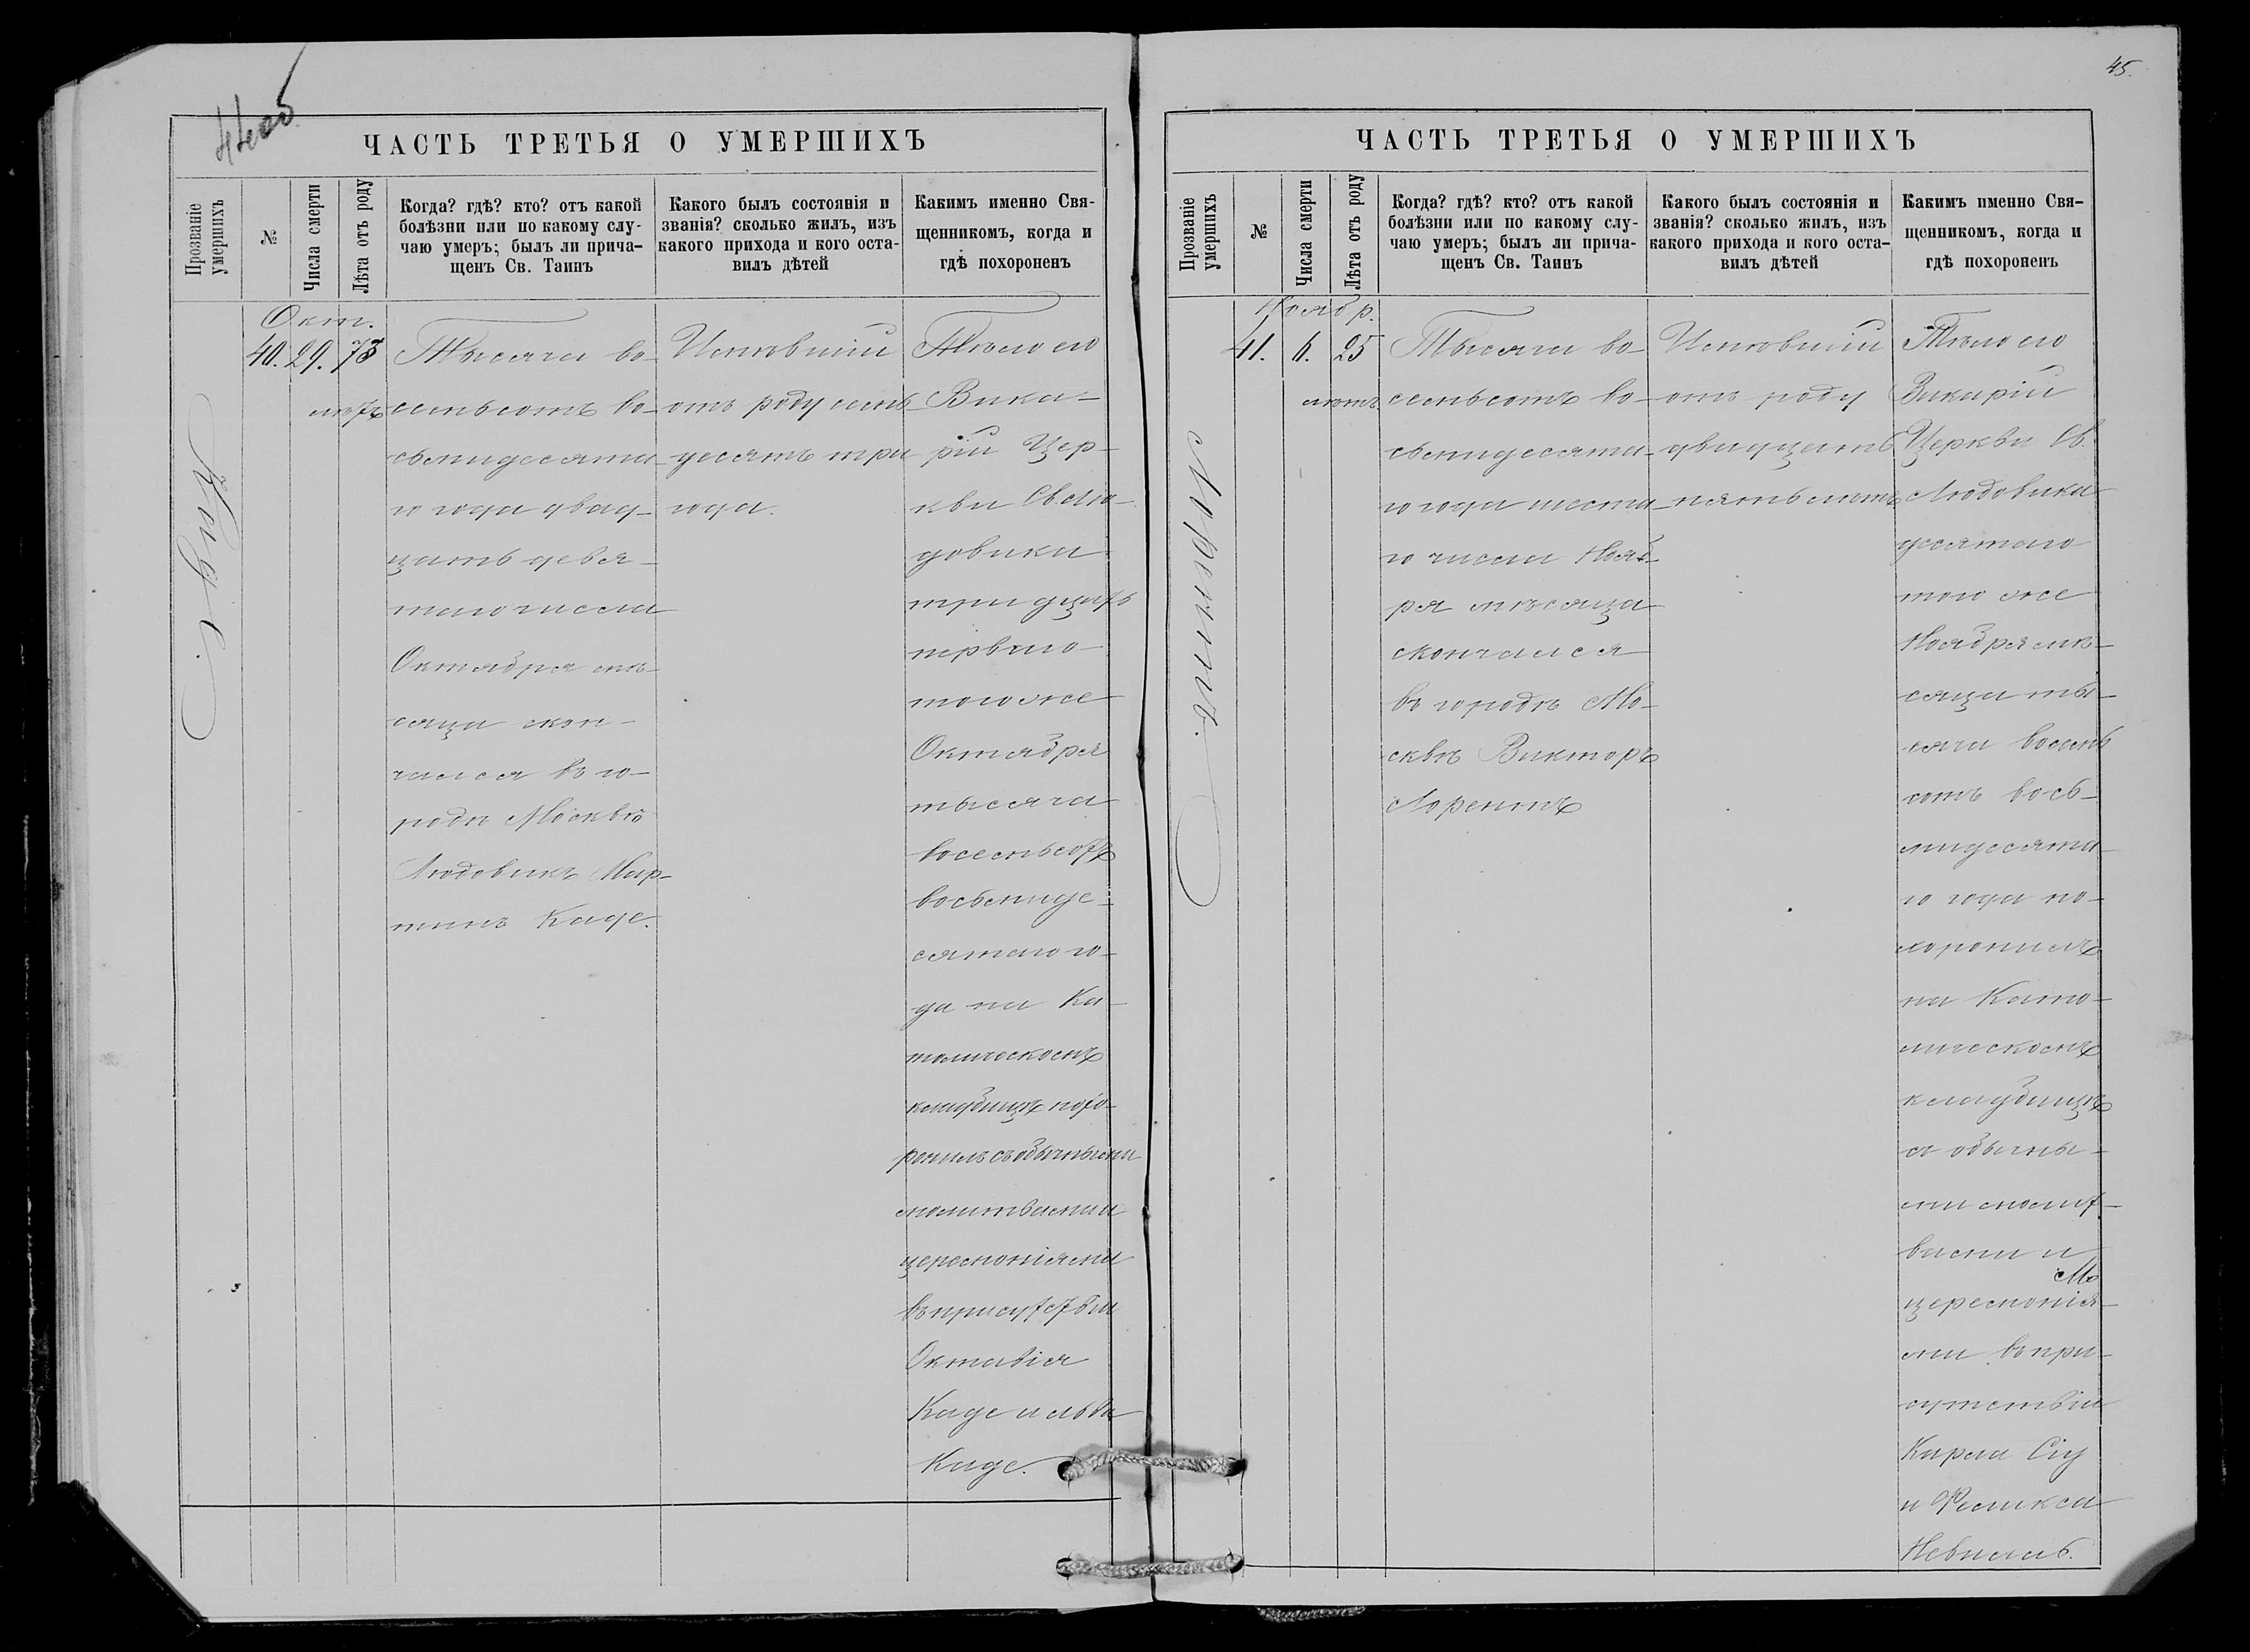 44об
ЧАСТЬ ТРЕТЬЯ О УМЕРШИХЪ
Прозваніе умершихъ
№
Числа смерти
Лѣта отъ роду
Когда? гдѣ? кто? отъ какой
болѣзни или по какому слу-
чаю умеръ; былъ ли прича-
щенъ Св. Таинъ
Какого былъ состоянія и
званія? сколько жилъ, изъ
какого прихода и кого оста-
вилъ дѣтей
Какимъ именно Свя-
щенникомъ, когда и
гдѣ похороненъ
Каде.
Окт.
40. 29. 73
лѣтъ
Тысяча во-
семьсотъ во-
сьмидесята-
го года двад-
цать девя-
таго числа
Октября мѣ-
сяца скон-
чался въ го-
родѣ Москвѣ
Людовикъ Мар-
тинъ Каде.
отъ роду семь-
десятъ три
года.
Тѣло его
Вика-
рій Цер-
кви Св. Лю-
довика
тридцать
перваго
того же
Октября
тысяча
восемьсотъ
восьмиде-
сятаго го-
да на Ка-
толическомъ
кладбищѣ похо-
ронилъ съ обычными
молитвами и
церемоніями
въ присутствіи
Октавія
Каде и Льва
Каде.
45.
ЧАСТЬ ТРЕТЬЯ О УМЕРШИХЪ
Прозваніе умершихъ
№
Числа смерти
Лѣта отъ роду
Когда? гдѣ? кто? отъ какой
болѣзни или по какому слу-
чаю умеръ; былъ ли прича-
щенъ Св. Таинъ
Какого былъ состоянія и
званія? сколько жилъ, изъ
какого прихода и кого оста-
вилъ дѣтей
Какимъ именно Свя-
щенникомъ, когда и
гдѣ похороненъ
Лорентъ.
Ноябр.
41. 6. 25
лѣтъ
Тысяча во-
семьсотъ во-
сьмидесята-
го года шеста-
го числа Нояб-
ря мѣсяца
скончался
въ городѣ Мо-
сквѣ Викторъ
Лорентъ
отъ роду
двадцать
пять лѣтъ
Тѣло его
Викарій
Церкви Св.
Людовика
десятаго
того же
Ноября мѣ-
сяца ты-
сяча восемь
сотъ вось-
мидесята-
го года по-
хоронилъ
на Като-
лическомъ
кладбищѣ
съ обычны-
ми молит-
вами и
церемонія-
ми въ при-
сутствіи
Карла Сіу
и Феликса